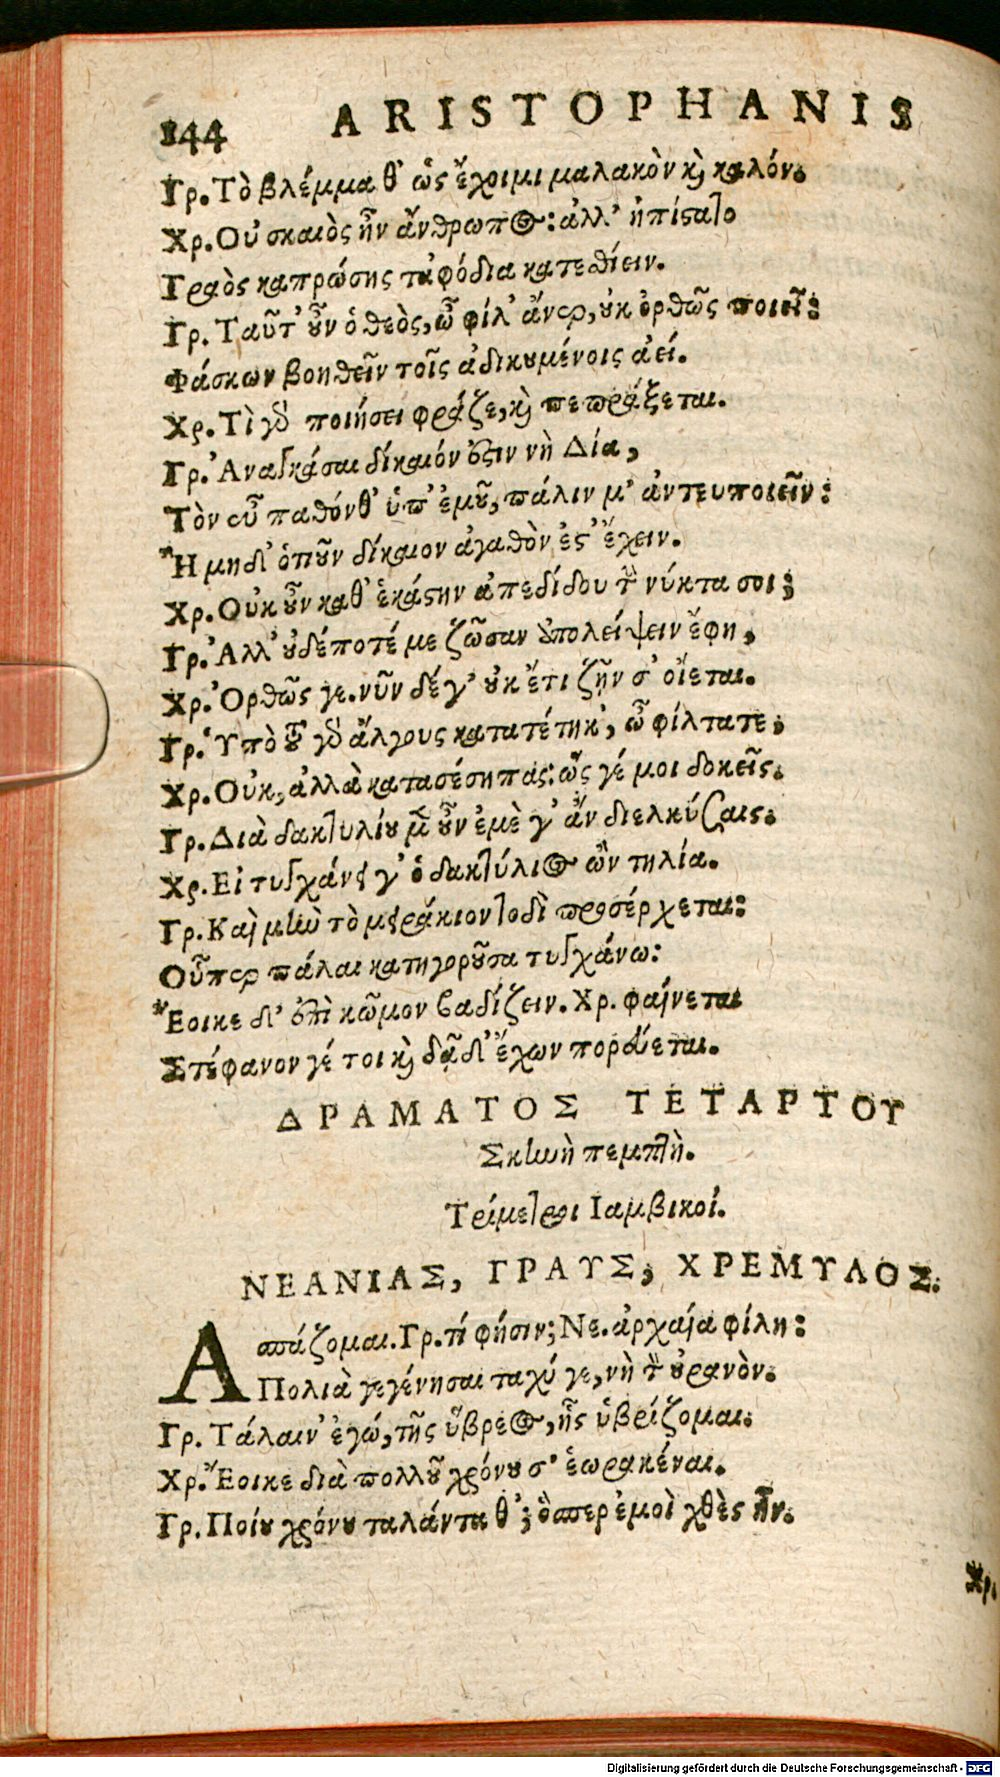 144 ARISTOPHANIS
Γρ. Τὸ βλέμμα θ' ὡς ἔχοιμι μαλακὸν καὶ καλόν.
Χρ. Οὐ σκαιὸς ἦν ἄνθρωπος: ἀλλ' ἠπίστατο
Γραὸς καπρώσης τἀφόδια κατεθίειν.
Γρ. Ταῦτ' οὖν ὁ θεὸς, ὦ φίλ' ἄνερ, οὐκ ὀρθῶς ποιεῖ:
Φάσκων βοηθεῖν τοῖς ἀδικουμένοις ἀεί.
Χρ. Τὶ γὰρ ποιήσει φράζε, καὶ πεπράξεται.
Γρ. Ἀναγκάσαι δίκαιόν ἐστιν νὴ Δία,
Τὸν εὖ παθόνθ' ὑπ' ἐμοῦ, πάλιν μ' ἀντευποιεῖν:
Ἢ μηδ' ὁποῦν δίκαιον ἀγαθὸν ἐστ' ἔχειν.
Χρ. Οὐκ οὖν καθ' ἑκάστην ἀπεδίδου τὴν νύκτα σοι;
Γρ. Ἀλλ' οὐδέποτέ με ζῶσαν ἀπολείψειν ἔφη,
Χρ. Ὀρθῶς γε. νῦν δέ γ' οὐκ ἔτι ζῇν σ' οἴεται.
Γρ. Ὑπὸ τοῦ γὰρ ἄλγους κατατέτηκ', ὦ φίλτατε;
Χρ. Οὐκ, ἀλλὰ κατασέσηπας: ὥς γέ μοι δοκεῖς.
Γρ. Διὰ δακτυλίου μὲν οὖν ἐμὲ γ' ἂν διελκύσαις.
Χρ. Εἰ τυγχάνει γ' ὁ δακτύλιος ὢν τηλία.
Γρ. Καὶ μὴν τὸ μειράκιον τοδὶ προσέρχεται:
Οὗπερ πάλαι κατηγοροῦσα τυγχάνω:
Ἔοικε δ' ἐπὶ κῶμον βαδίζειν. Χρ. φαίνεται
Στέφανον γέ τοι καὶ δᾷδ' ἔχων πορεύεται.
ΔΡΑΜΑΤΟΣ ΤΕΤΑΡΤΟΥ
Σκηνὴ πεμπτὴ.
Τρίμετροι Ιαμβικοί.
ΝΕΑΝΙΑΣ, ΓΡΑΥΣ, ΧΡΕΜΥΛΟΣ.
Ασπάζομαι. Γρ. τί φήσιν; Νε. ἀρχαία φίλη:
Πολιὰ γεγένησαι ταχύ γε, νὴ τὸν οὐρανὸν.
Γρ. Τάλαιν' ἐγώ, τῆς ὕβρεος, ἧς ὑβρίζομαι.
Χρ. Ἔοικε διὰ πολλοῦ χρόνου σ' ἑωρακέναι.
Γρ. Ποίου χρόνου ταλάντα θ'; ὅσπερ ἐμοὶ χθὲς ἦν.
Χρ.
Digitalisierung gefördert durch die Deutsche Forschungsgemeinschaft - DFG